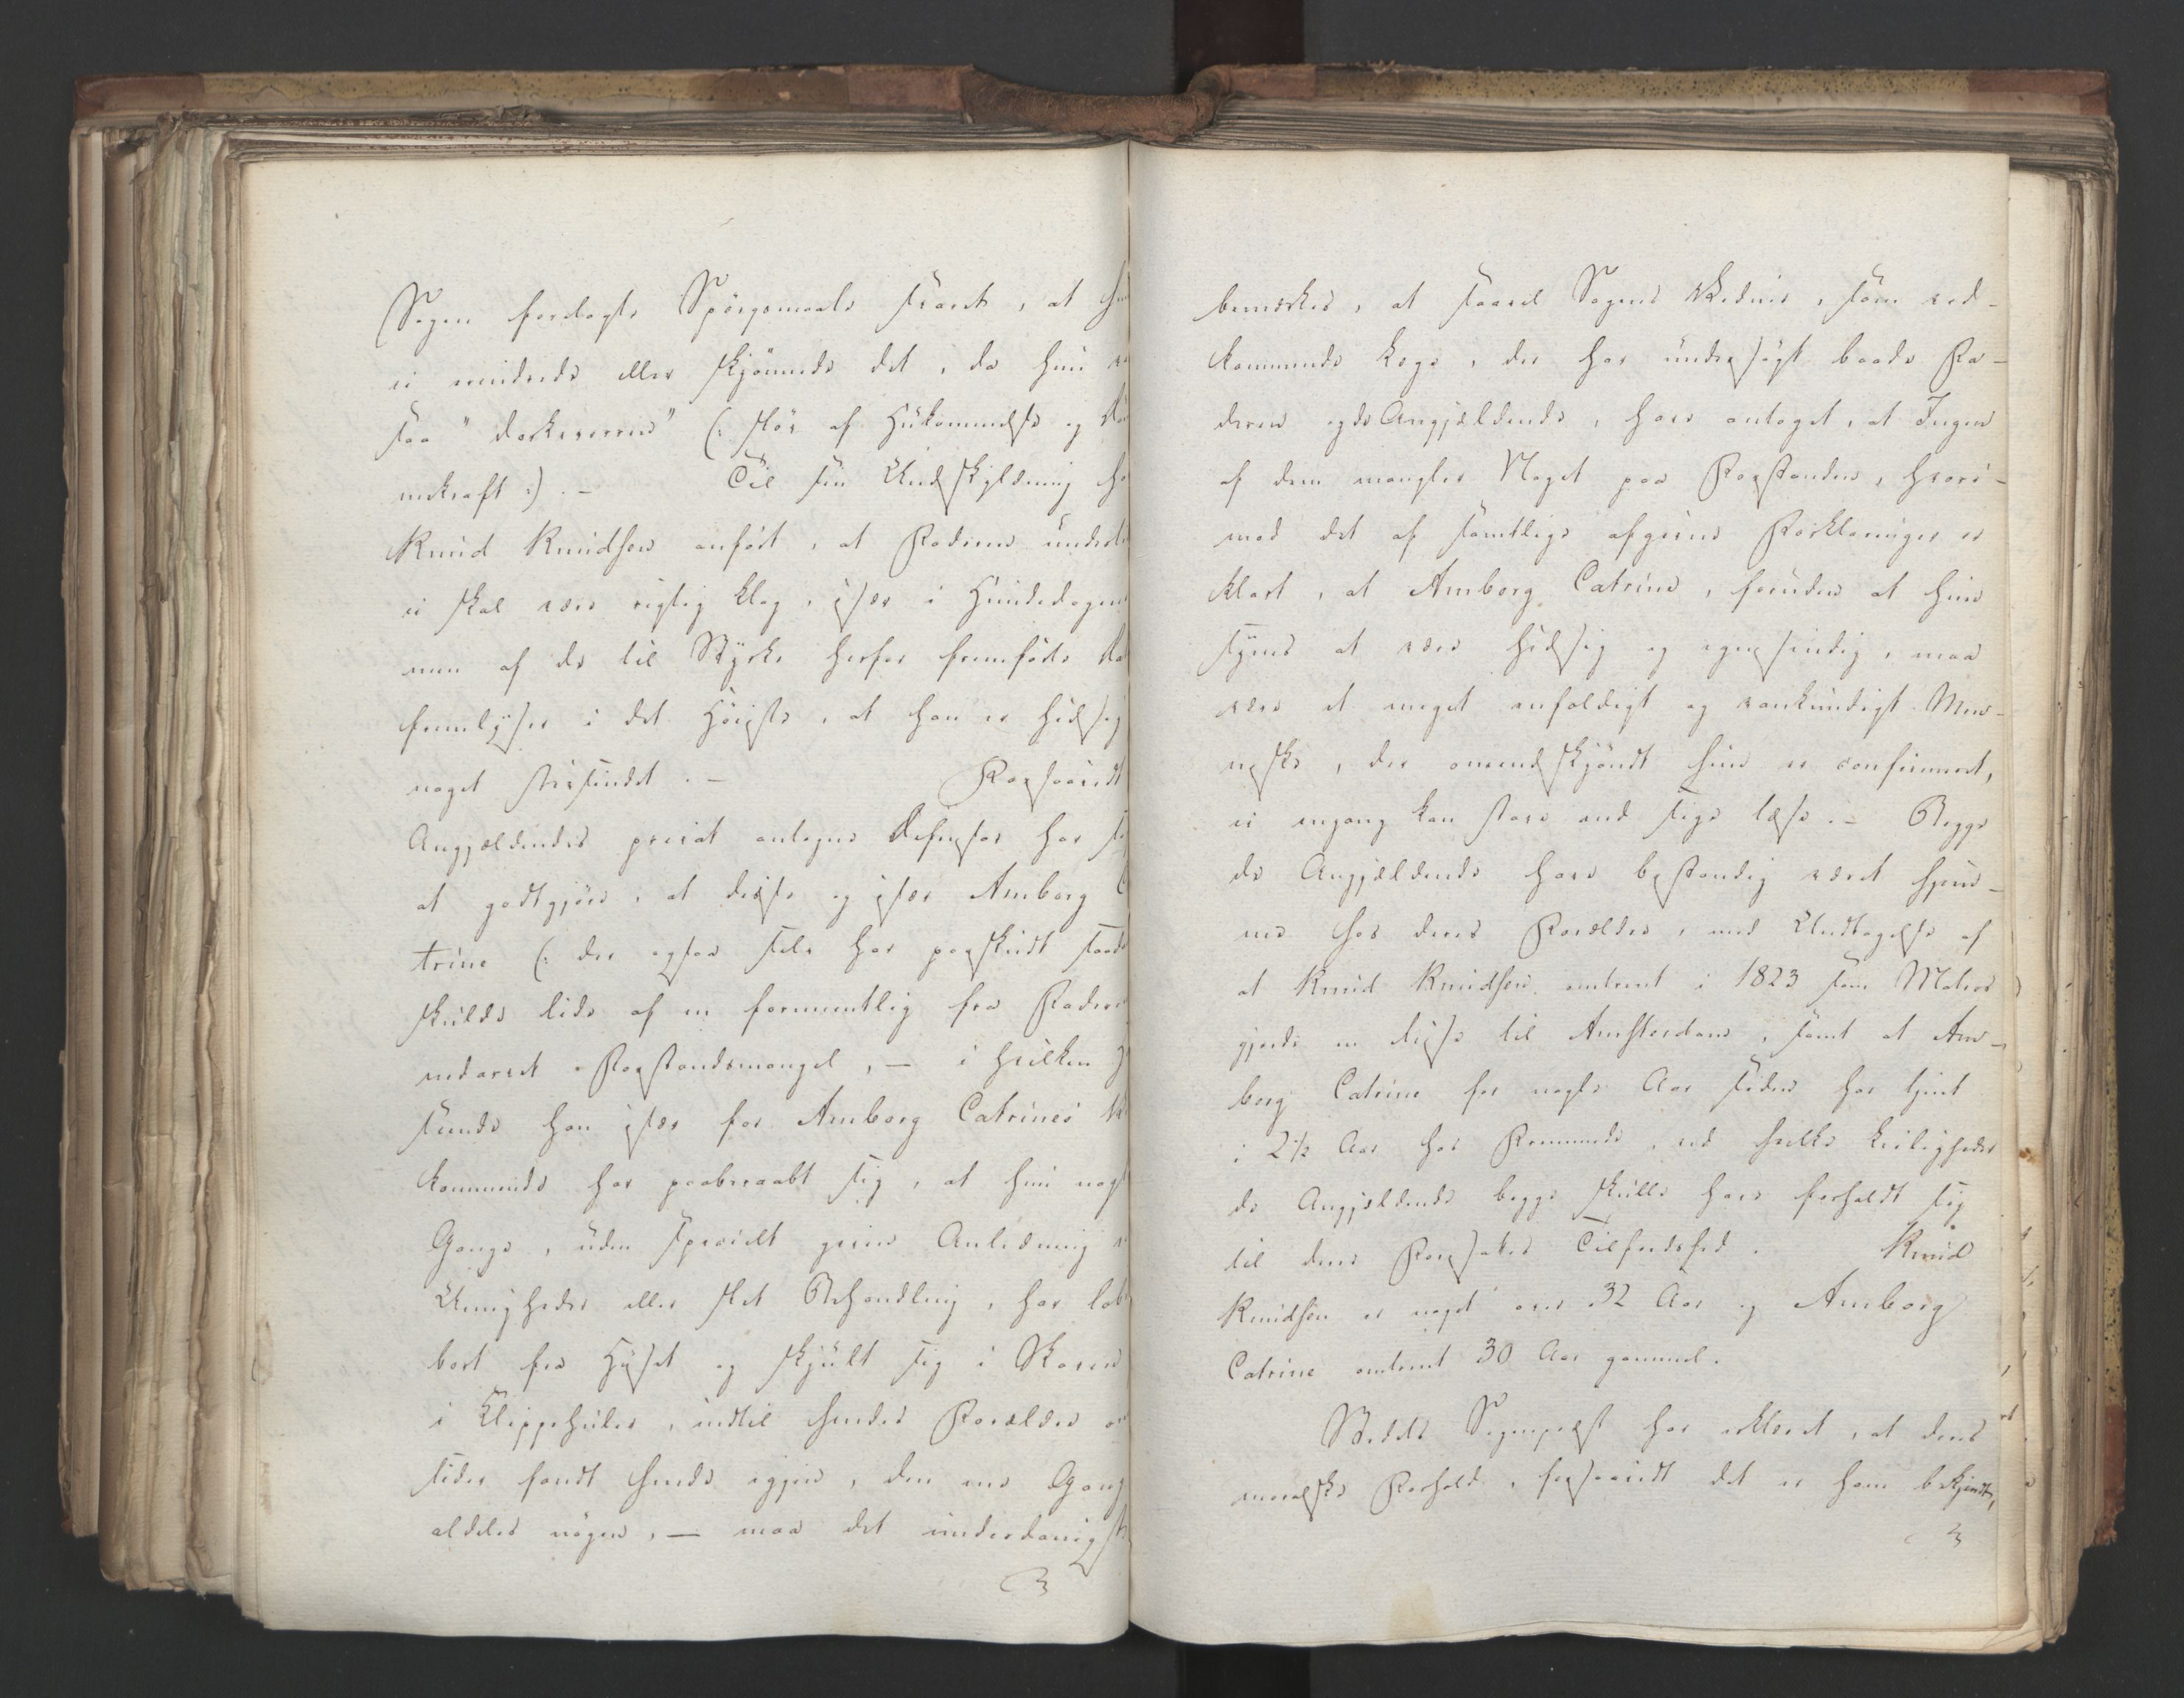 Sagen foredagte Spörgsmaale svaret, at hu
ei mindede eller skjönnede det, da hun va
saa "  " (: slöv af Hukommelse og
nekraft :). – Til sin Undskyldning ha
Knud Knudsen anfört, at Faderen underti
ei skal være rigtig klog, især i Hundedagene
men af de til Styrke herfor fremförte
fremlyser i det Höieste, at han er hidsig
noget stivsindet. – Forsaavidt
Angjældendes privat antagne Defensor har sö
at godtgjöre, at disse og især Amborg C
trine (: der ogsaa selv har paaskudt saad
skulde lide af en formeentlig fra Fader
nedarvet Forstandsmangel, – i hvilken H
seende han især for Amborg Catrines
kommende har paaberaabt sig, at hun nogle
Gange, uden speciell given Anledning
Uenigheder eller slet Behandling, har löb
bort fra Huset og skjült sig i Skoven
i Klippehuler, indtil hendes Forældre
sider fandt hende igjen, den ene Gang
aldeles nögen, – maa det underdanigst
bemærkes, at saavel Sagens Vidner, som ved-
kommende Læge, der har undersögt baade Fa-
deren og de Angjældende, have antaget, at Ingen
af dem mangler Noget paa Forstanden, hvori-
mod det af samtlige afgivne Forklaringer er
klart, at Amborg Catrine, foruden at hun
synes at være hidsig og egensindig, maa
være et meget enfoldigt og vankundigt Men-
neske, der omendskjöndt hun er confirmeret,
ei engang kan stave end sige læse. – Begge
de Angjældende have bestandig været hjem-
me hos deres Forældre, med Undtagelse af
at Knud Knudsen omtrent i 1823 som Matros
gjorde en Reise til Amsterdam, samt at Am-
borg Catrine for nogle Aar siden har tjent
i 2½ Aar hos Fremmede, ved hvilke Leiligheder
de Angjældende begge skulle have forholdt sig
til deres Foresattes Tilfredshed. Knud
Knudsen er noget over 32 Aar og Amborg
Catrine omtrent 30 Aar gammel.
Stedets Sognepræst har erklæret, at deres
moralske Forhold, forsaavidt det er ham bekjendt,